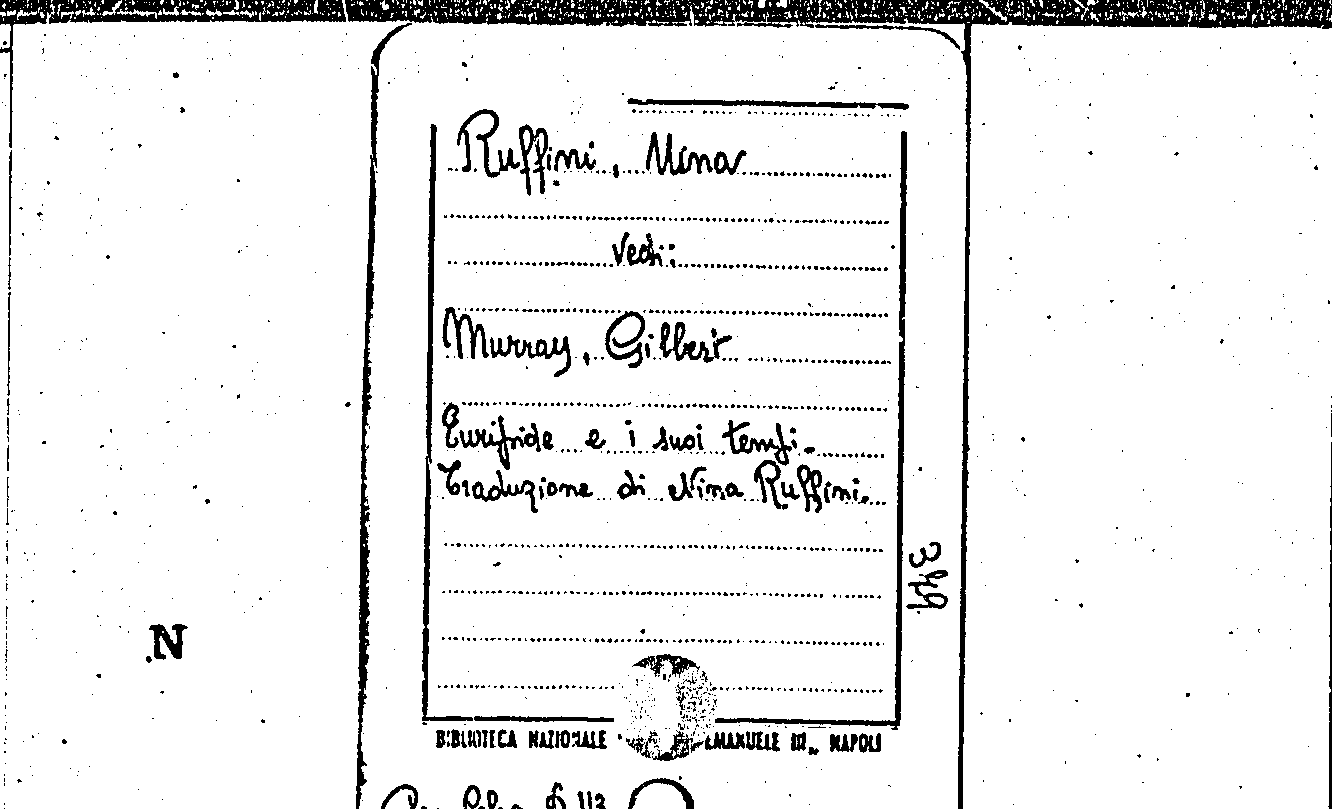 Ruffini, Nina
vedi:
Murray, Gilbert
Euripide e i suoi tempi.
Traduzione di Nina Ruffini.
349
N
BIBLIOTECA NAZIONALE EMANUELE III„ NAPOLI